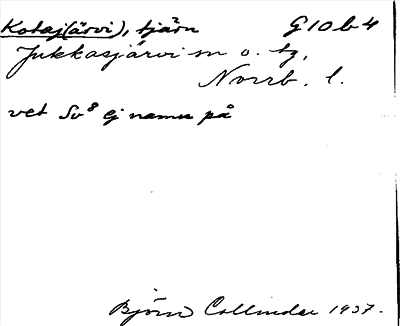 Kotaj(ärvi), tjärn G10b4
Jukkasjärvi sn o. tg,
Norrb. l.
vet Sv8 ej namn på
Björn Collinder 1937.